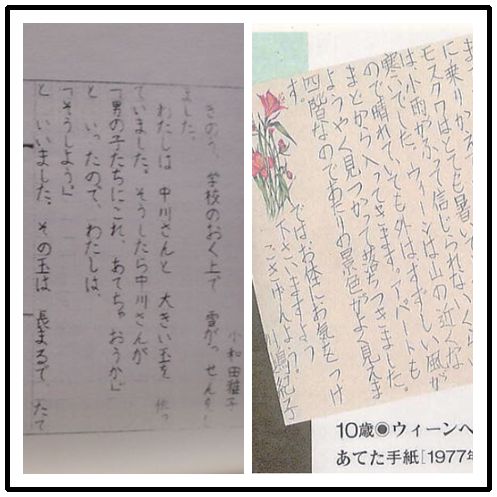 小和田雅子
きのう、学校のおく上で 雪がっせんをし
ました。
わたしは 中川さんと 大きい玉を 作っ
ていました。そうしたら中川さんが
「男の子たちにこれ、あてちゃおうか」
と いったので、わたしは、
「そうしよう。」
と いいました。その玉は 長まるで、たて
に乗りかえ
モスクワはとても暑い
て信じられないくらい
は小雨がふ
寒いでした。ウィーンは山の近くな
ので晴れていても外はすずしい風が
まどから入ってきます。アパートも
ようやく見つかって落ちつきました。
四階なのであたりの景色がよく見えま
す。
ではお体にお気をつけ
下さいますよう
ごきげんよう。
川嶋紀子
10歳◉ウィーンへ
あてた手紙[1977年